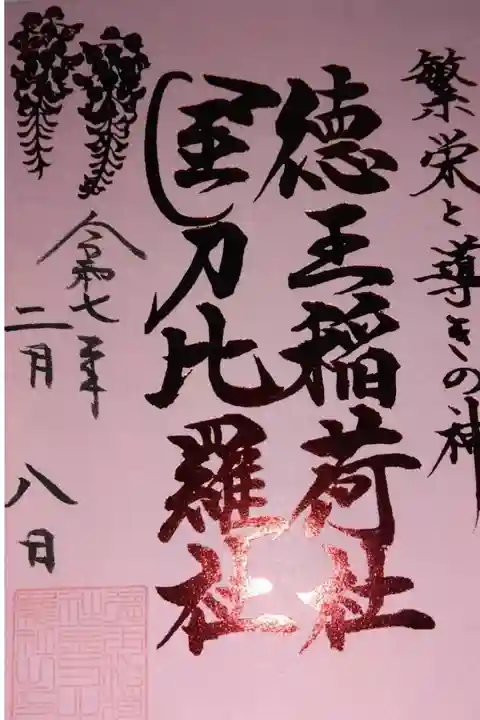 繁栄と導きの神
徳王稲荷社
金刀比羅社
令和七年
二月 八日